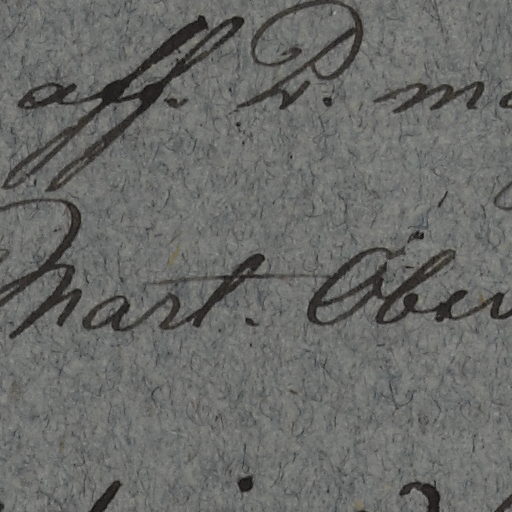 aff. P. m
Mart. Ober